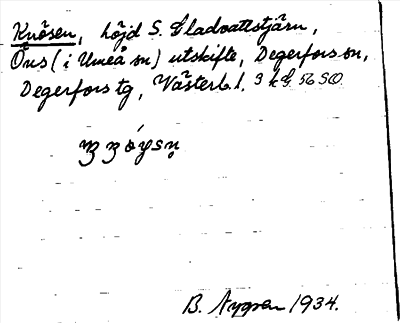 Knösen, höjd S. Gladvattstjärn,
Öns (i Umeå sn) utskifte, Degerfors sn,
Degerfors tg, Västerb. l. 3 kg 56 SO
B. Nygren 1934.